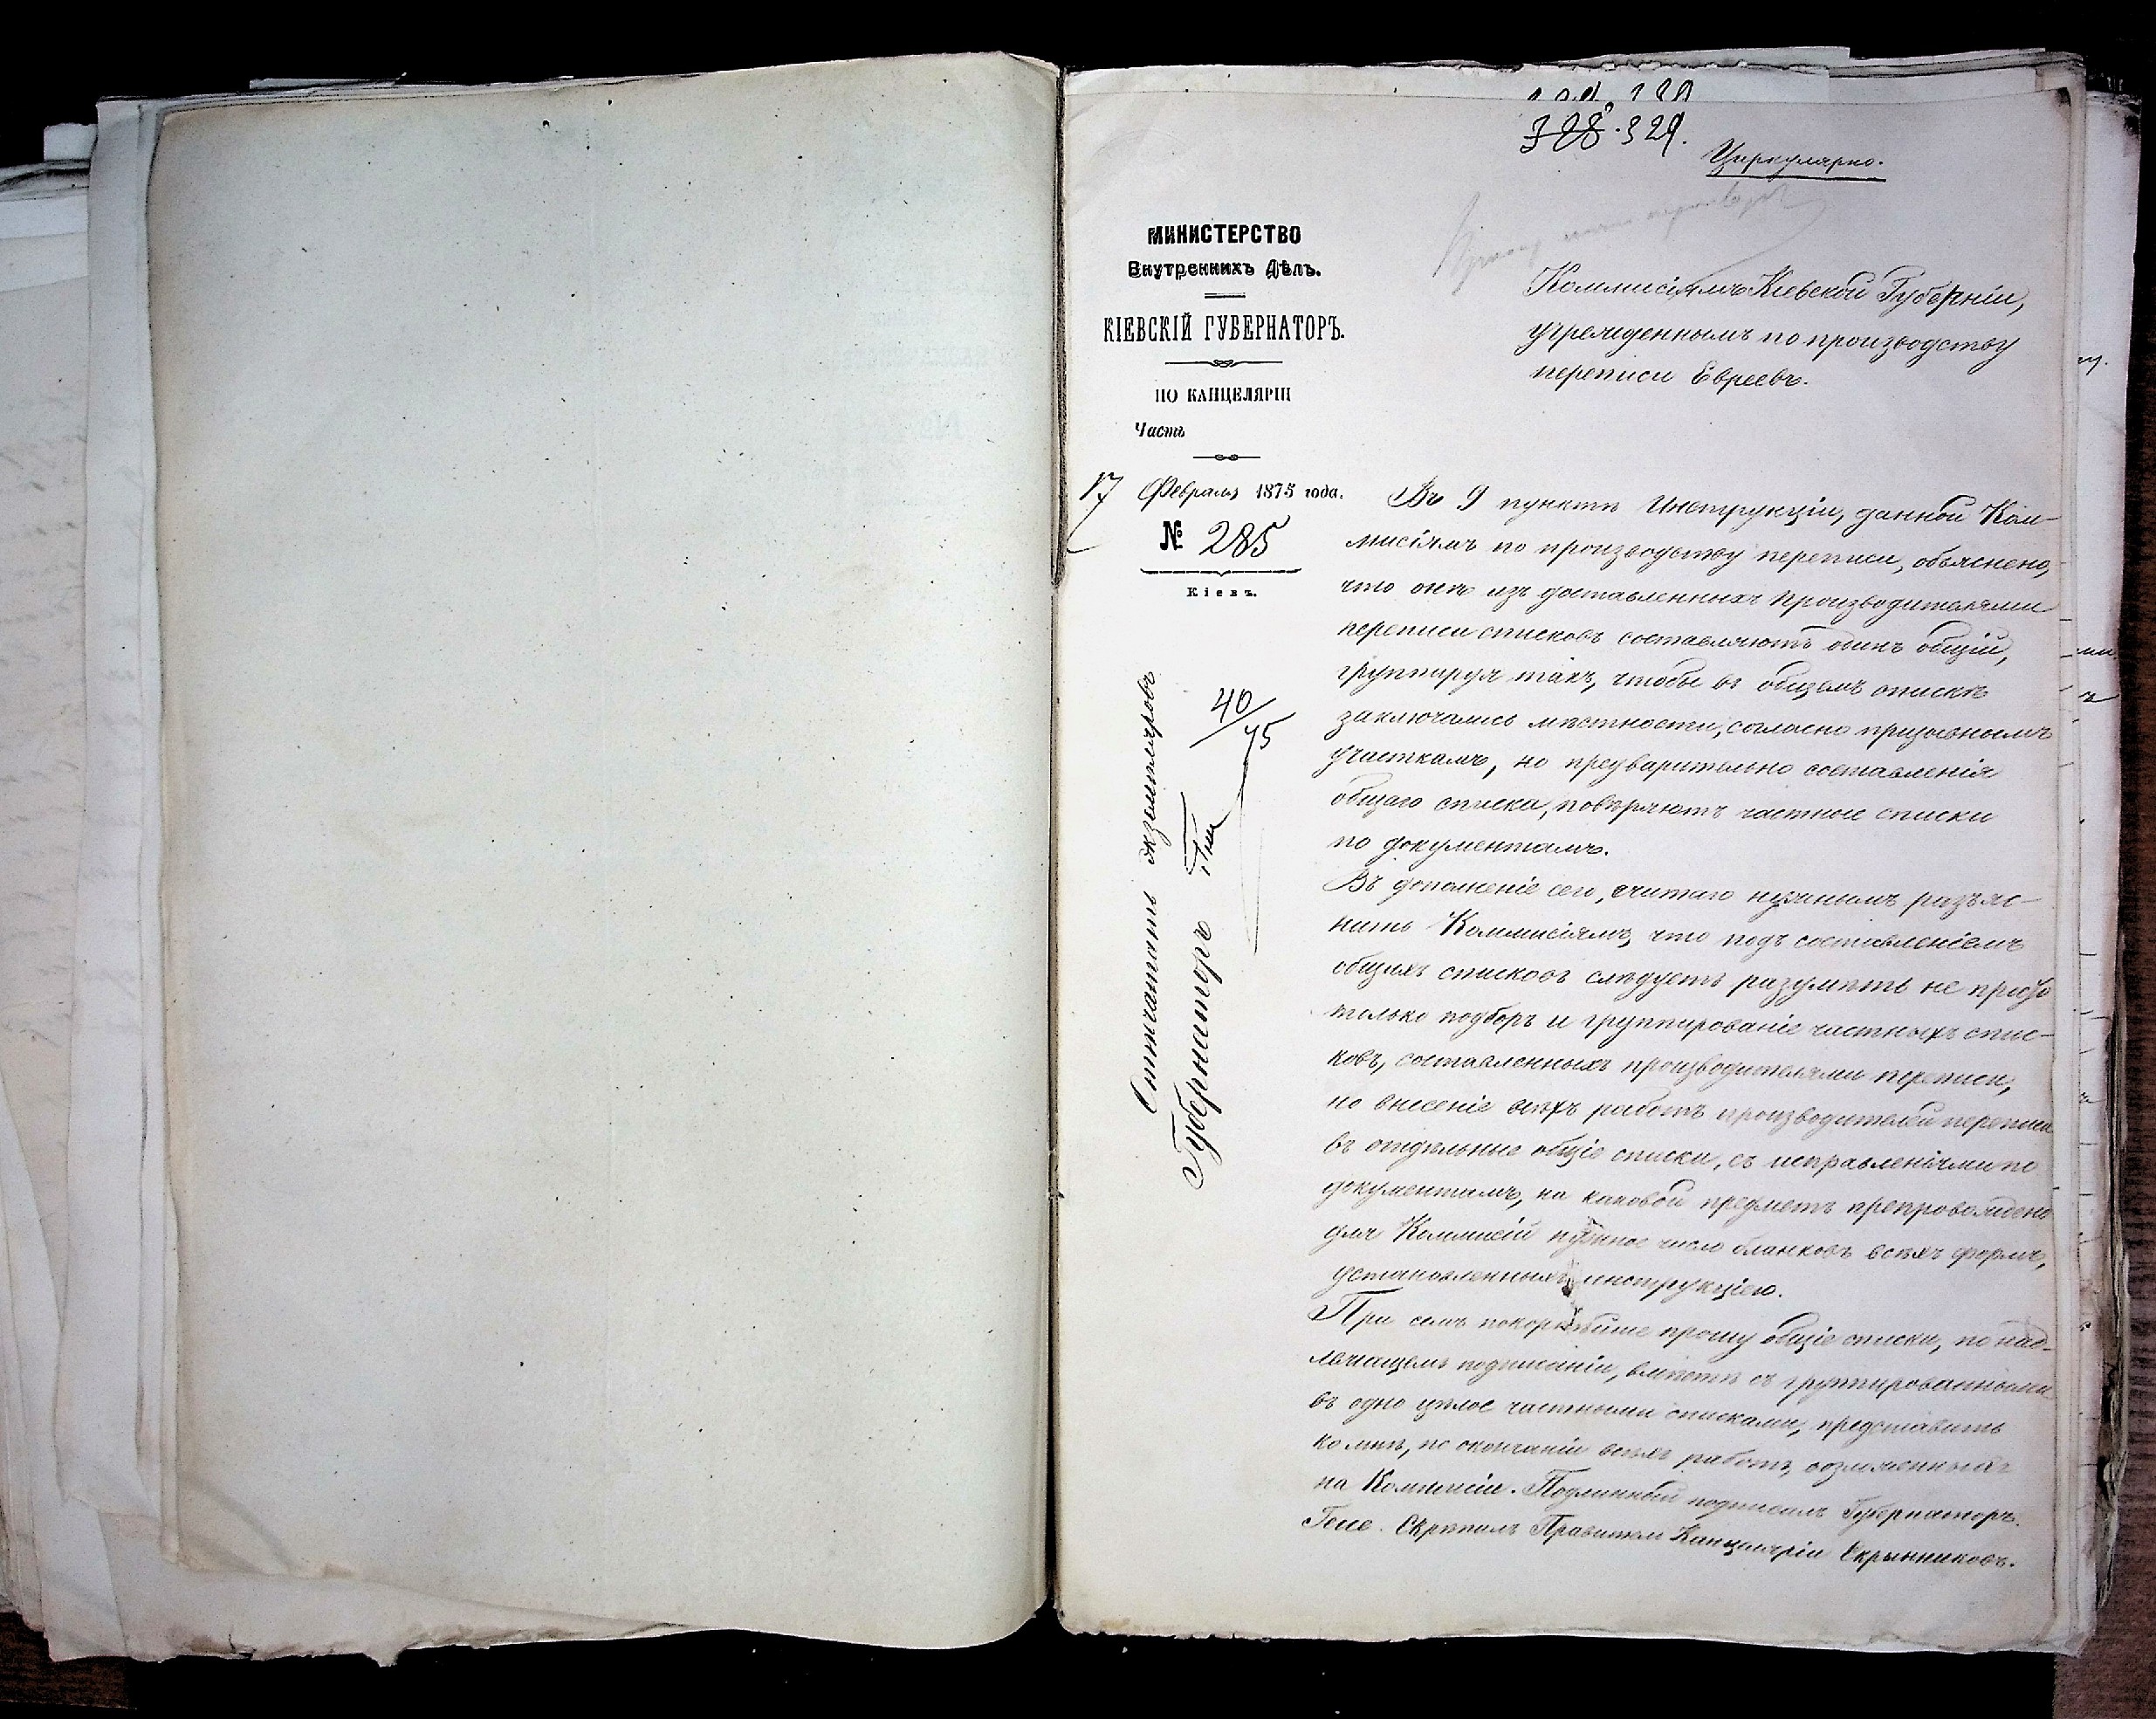 328. 329.
Циркулярно.
МИНИСТЕРСТВО
Внутреннихъ Дѣлъ.
КІЕВСКІЙ ГУБЕРНАТОРЪ.
ПО КАНЦЕЛЯРІИ
Часть
17 Февраля 1875 года.
№ 285
Кіевъ.
40/75
Отпечатать экземпляровъ
Губернаторъ
Коммисіямъ Кіевской Губерніи,
учрежденнымъ по производству
переписи Евреевъ.
Въ 9 пунктѣ Инструкціи, данной Ком-
мисіямъ по производству переписи, объяснено,
что онѣ изъ доставленныхъ производителями
переписи списковъ составляютъ одинъ общій,
группируя такъ, чтобы въ общемъ спискѣ
заключались мѣстности, согласно призывнымъ
участкамъ, но предварительно составленія
общаго списка, повѣряютъ частные списки
по документамъ.
Въ дополненіе сего, считаю нужнымъ разъяс-
нить Коммисіямъ, что подъ составленіемъ
общихъ списковъ слѣдуетъ разумѣть не
только подборъ и группированіе частныхъ спис-
ковъ, составленныхъ производителями переписи,
но внесеніе всѣхъ работъ производителей переписи
въ отдѣльные общіе списки, съ исправленіями по
документамъ, на каковой предметъ препровождено
для Коммисій нужное число бланковъ всѣхъ формъ,
установленныхъ инструкціею.
При семъ покорнѣйше прошу общіе списки, по над-
лежащемъ подписаніи, вмѣстѣ съ группированными
въ одно цѣлое частными списками, представить
ко мнѣ, по окончаніи всѣхъ работъ, возложенныхъ
на Коммисіи. Подлинный подписалъ Губернаторъ
Гессе. Скрѣпилъ Правитель Канцеляріи Скрынниковъ.